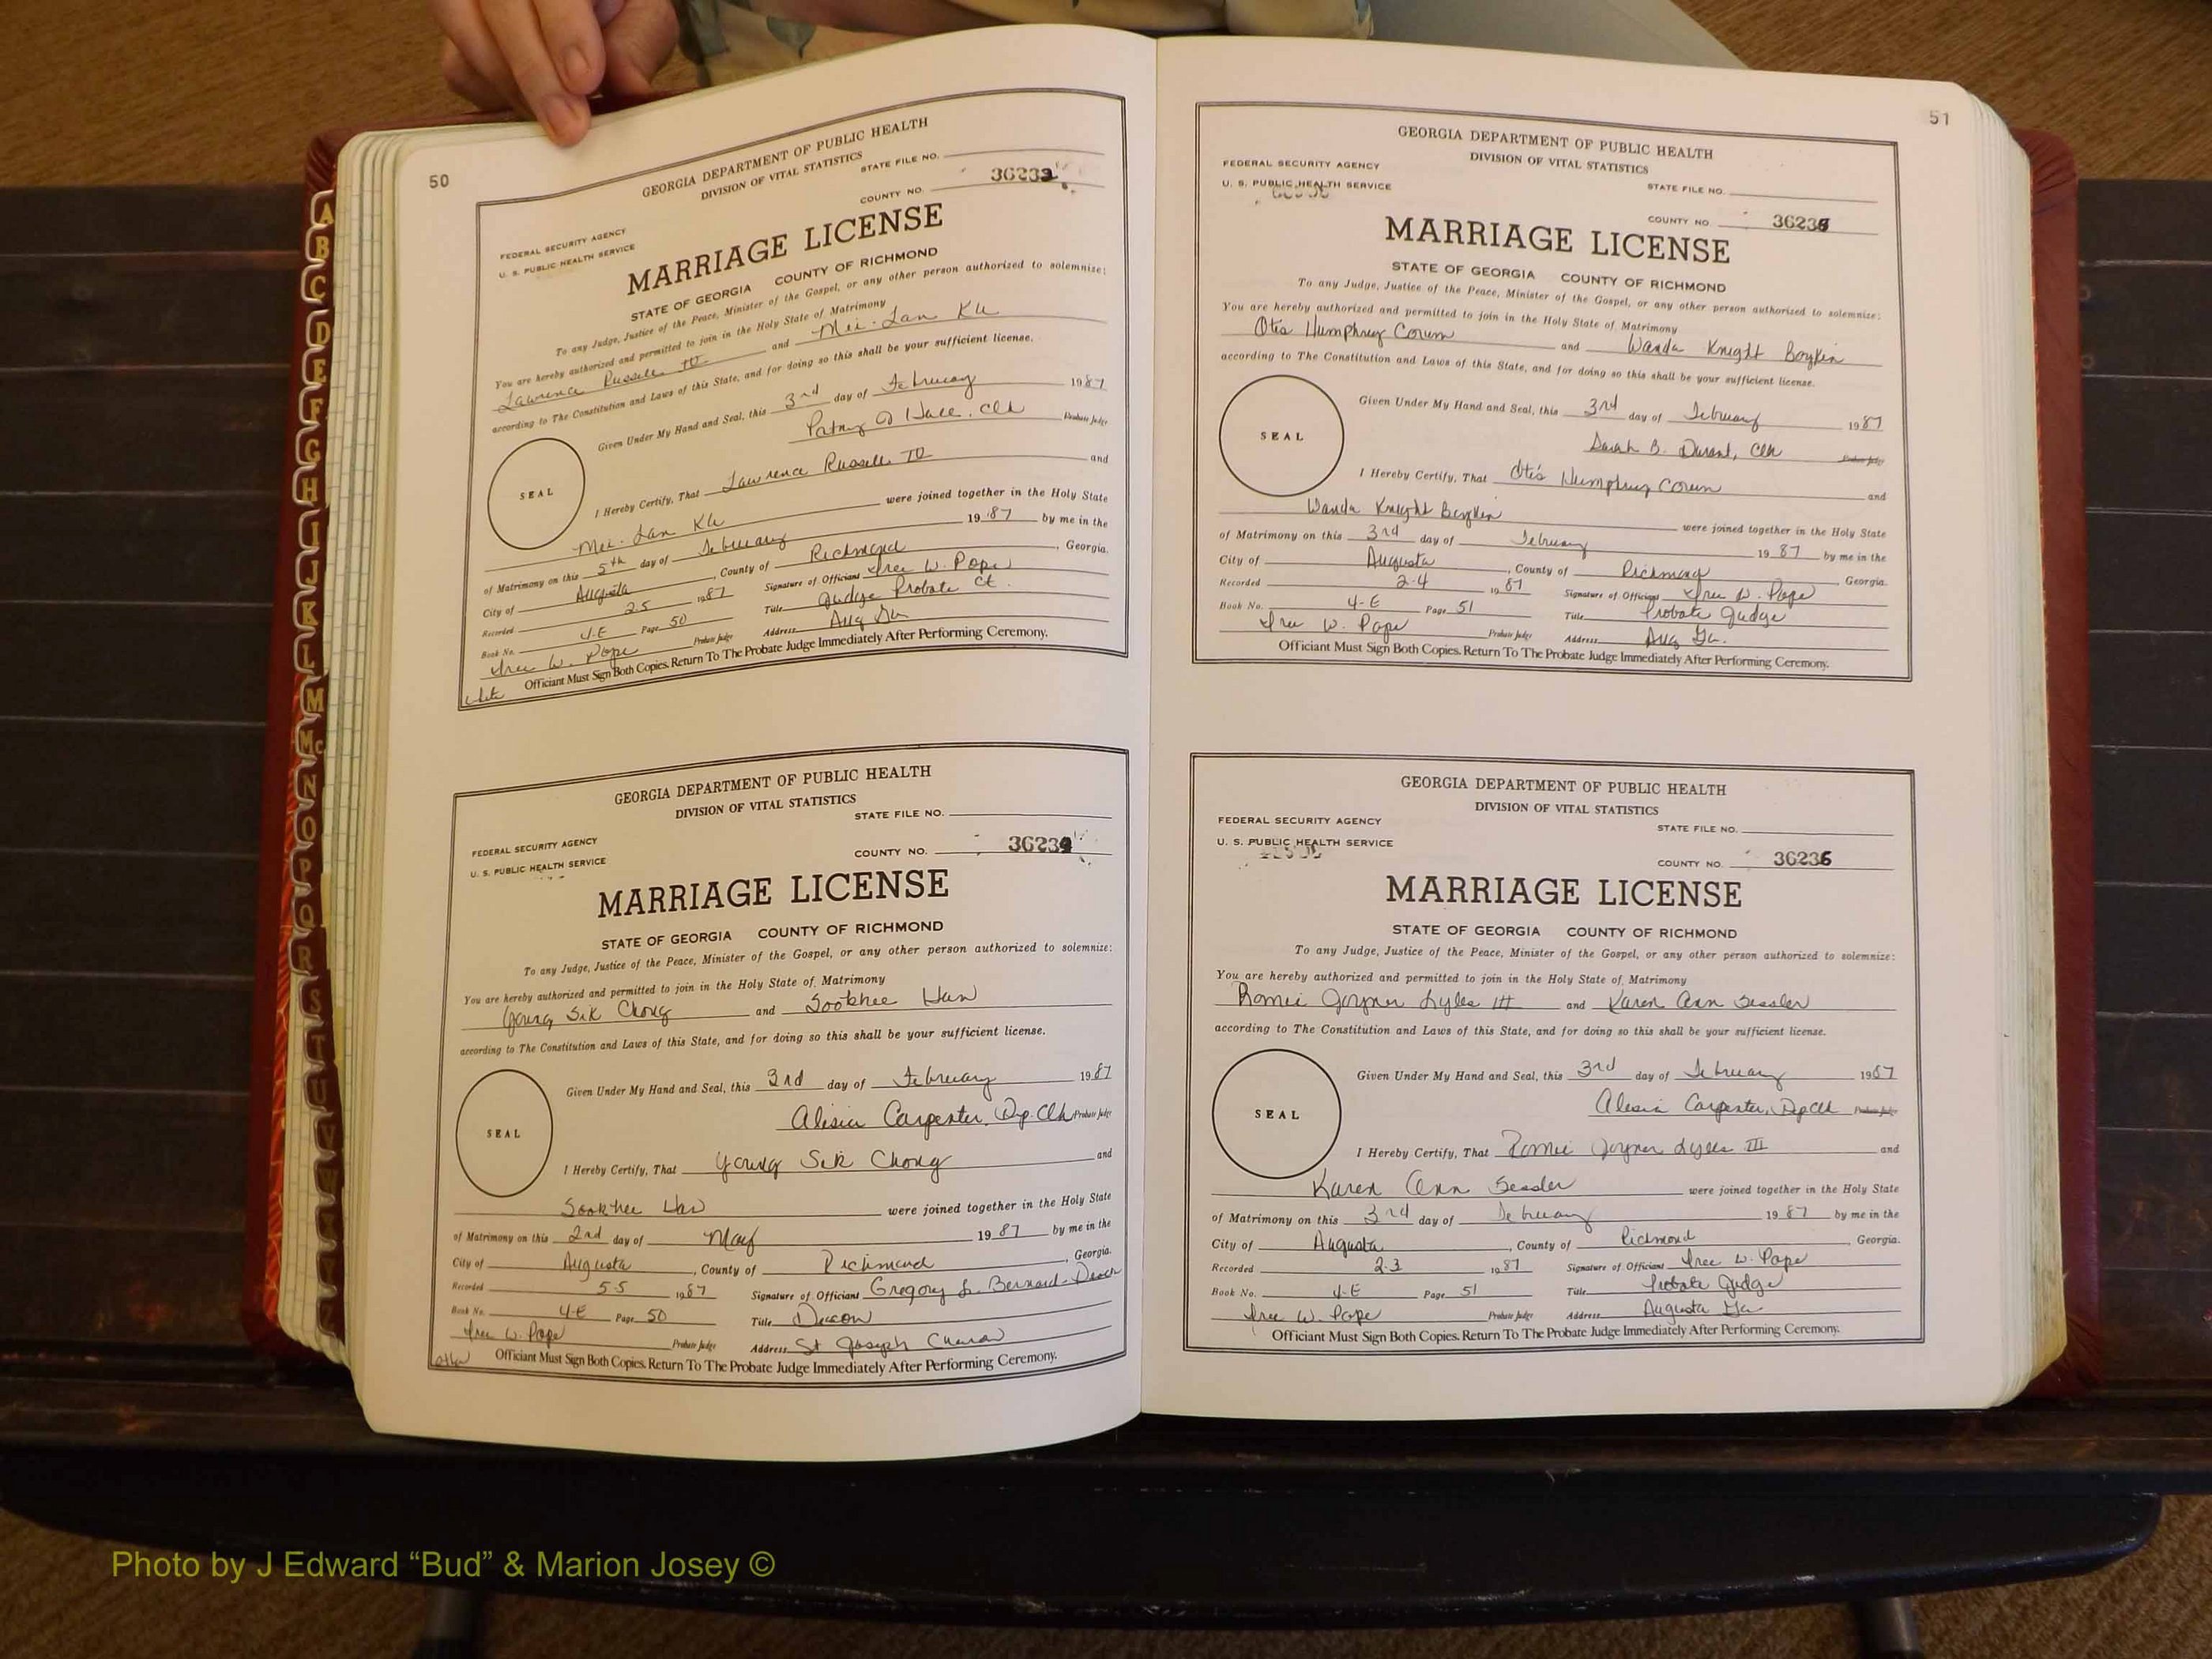 50
GEORGIA DEPARTMENT OF PUBLIC HEALTH
DIVISION OF VITAL STATISTICS
STATE FILE NO.
COUNTY NO. 36233
FEDERAL SECURITY AGENCY
U. S. PUBLIC HEALTH SERVICE
MARRIAGE LICENSE
STATE OF GEORGIA COUNTY OF RICHMOND
To any Judge, Justice of the Peace, Minister of the Gospel, or any other person authorized to solemnize:
You are hereby authorized and permitted to join in the Holy State of Matrimony
Lawrence Russell and Mei-Lan Ku
according to The Constitution and Laws of this State, and for doing so this shall be your sufficient license.
Given Under My Hand and Seal, this 3rd day of February 1987
Hall, Clk Probate Judge
SEAL
I Hereby Certify, That Lawrence Russell and
Mei-Lan Ku were joined together in the Holy State
of Matrimony on this 5th day of February 1987 by me in the
City of Augusta, County of Richmond, Georgia.
Recorded 2-5 1987 Signature of Officiant W. Pope
Book No. 4-E Page 50 Title Judge Probate Ct.
W. Pope Probate Judge Address Aug Ga
Officiant Must Sign Both Copies. Return To The Probate Judge Immediately After Performing Ceremony.
GEORGIA DEPARTMENT OF PUBLIC HEALTH
DIVISION OF VITAL STATISTICS
STATE FILE NO.
FEDERAL SECURITY AGENCY
COUNTY NO. 36234
U. S. PUBLIC HEALTH SERVICE
MARRIAGE LICENSE
STATE OF GEORGIA COUNTY OF RICHMOND
To any Judge, Justice of the Peace, Minister of the Gospel, or any other person authorized to solemnize:
You are hereby authorized and permitted to join in the Holy State of Matrimony
Young Sik Chong and Sookhee Han
according to The Constitution and Laws of this State, and for doing so this shall be your sufficient license.
Given Under My Hand and Seal, this 3rd day of February 1987
Alesia Carpenter, Dep. Clk Probate Judge
SEAL
I Hereby Certify, That Young Sik Chong and
Sookhee Han were joined together in the Holy State
of Matrimony on this 2nd day of May 1987 by me in the
City of Augusta, County of Richmond, Georgia.
Recorded 5-5 1987 Signature of Officiant Gregory L. Bernard
Book No. 4-E Page 50 Title Deacon
W. Pope Probate Judge Address St Joseph Church
Officiant Must Sign Both Copies. Return To The Probate Judge Immediately After Performing Ceremony.
51
GEORGIA DEPARTMENT OF PUBLIC HEALTH
DIVISION OF VITAL STATISTICS
FEDERAL SECURITY AGENCY
U. S. PUBLIC HEALTH SERVICE
STATE FILE NO.
COUNTY NO. 36235
MARRIAGE LICENSE
STATE OF GEORGIA COUNTY OF RICHMOND
To any Judge, Justice of the Peace, Minister of the Gospel, or any other person authorized to solemnize:
You are hereby authorized and permitted to join in the Holy State of Matrimony
Otis Humphrey Corum and Wanda Knight Boykin
according to The Constitution and Laws of this State, and for doing so this shall be your sufficient license.
Given Under My Hand and Seal, this 3rd day of February 1987
Sarah B. Durant, Clk Probate Judge
SEAL
I Hereby Certify, That Otis Humphrey Corum and
Wanda Knight Boykin were joined together in the Holy State
of Matrimony on this 3rd day of February 1987 by me in the
City of Augusta, County of Richmond, Georgia.
Recorded 2-4 1987 Signature of Officiant W. Pope
Book No. 4-E Page 51 Title Probate Judge
W. Pope Probate Judge Address Aug Ga.
Officiant Must Sign Both Copies. Return To The Probate Judge Immediately After Performing Ceremony.
GEORGIA DEPARTMENT OF PUBLIC HEALTH
DIVISION OF VITAL STATISTICS
FEDERAL SECURITY AGENCY
STATE FILE NO.
U. S. PUBLIC HEALTH SERVICE
COUNTY NO. 36236
MARRIAGE LICENSE
STATE OF GEORGIA COUNTY OF RICHMOND
To any Judge, Justice of the Peace, Minister of the Gospel, or any other person authorized to solemnize:
You are hereby authorized and permitted to join in the Holy State of Matrimony
Romie Joyner Lyles III and Karen Ann Sessler
according to The Constitution and Laws of this State, and for doing so this shall be your sufficient license.
Given Under My Hand and Seal, this 3rd day of February 1987
Alesia Carpenter, Dep Clk Probate Judge
SEAL
I Hereby Certify, That Romie Joyner Lyles III and
Karen Ann Sessler were joined together in the Holy State
of Matrimony on this 3rd day of February 1987 by me in the
City of Augusta, County of Richmond, Georgia.
Recorded 2-3 1987 Signature of Officiant W. Pope
Book No. 4-E Page 51 Title Probate Judge
W. Pope Probate Judge Address Augusta Ga
Officiant Must Sign Both Copies. Return To The Probate Judge Immediately After Performing Ceremony.
A
B
C
D
E
F
G
H
I
J
K
L
M
Mc
N
O
P
Q
R
S
T
U
V
W
Photo by J Edward “Bud” & Marion Josey ©